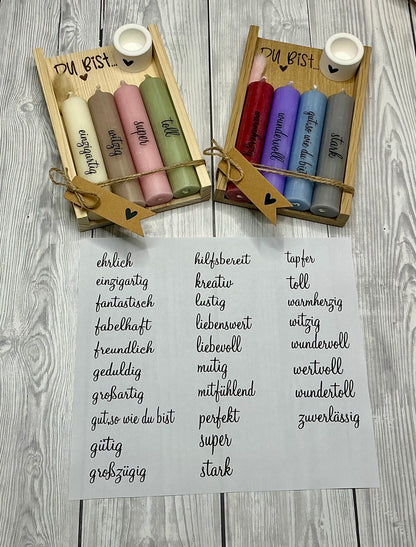 Du Bist...
einzigartig
witzig
super
toll
Du Bist...
wundervoll
gut,so wie du bist
stark
ehrlich
einzigartig
fantastisch
fabelhaft
freundlich
geduldig
großartig
gut,so wie du bist
gütig
großzügig
hilfsbereit
kreativ
lustig
liebenswert
liebevoll
mutig
mitfühlend
perfekt
super
stark
tapfer
toll
warmherzig
witzig
wundervoll
wertvoll
wundertoll
zuverlässig